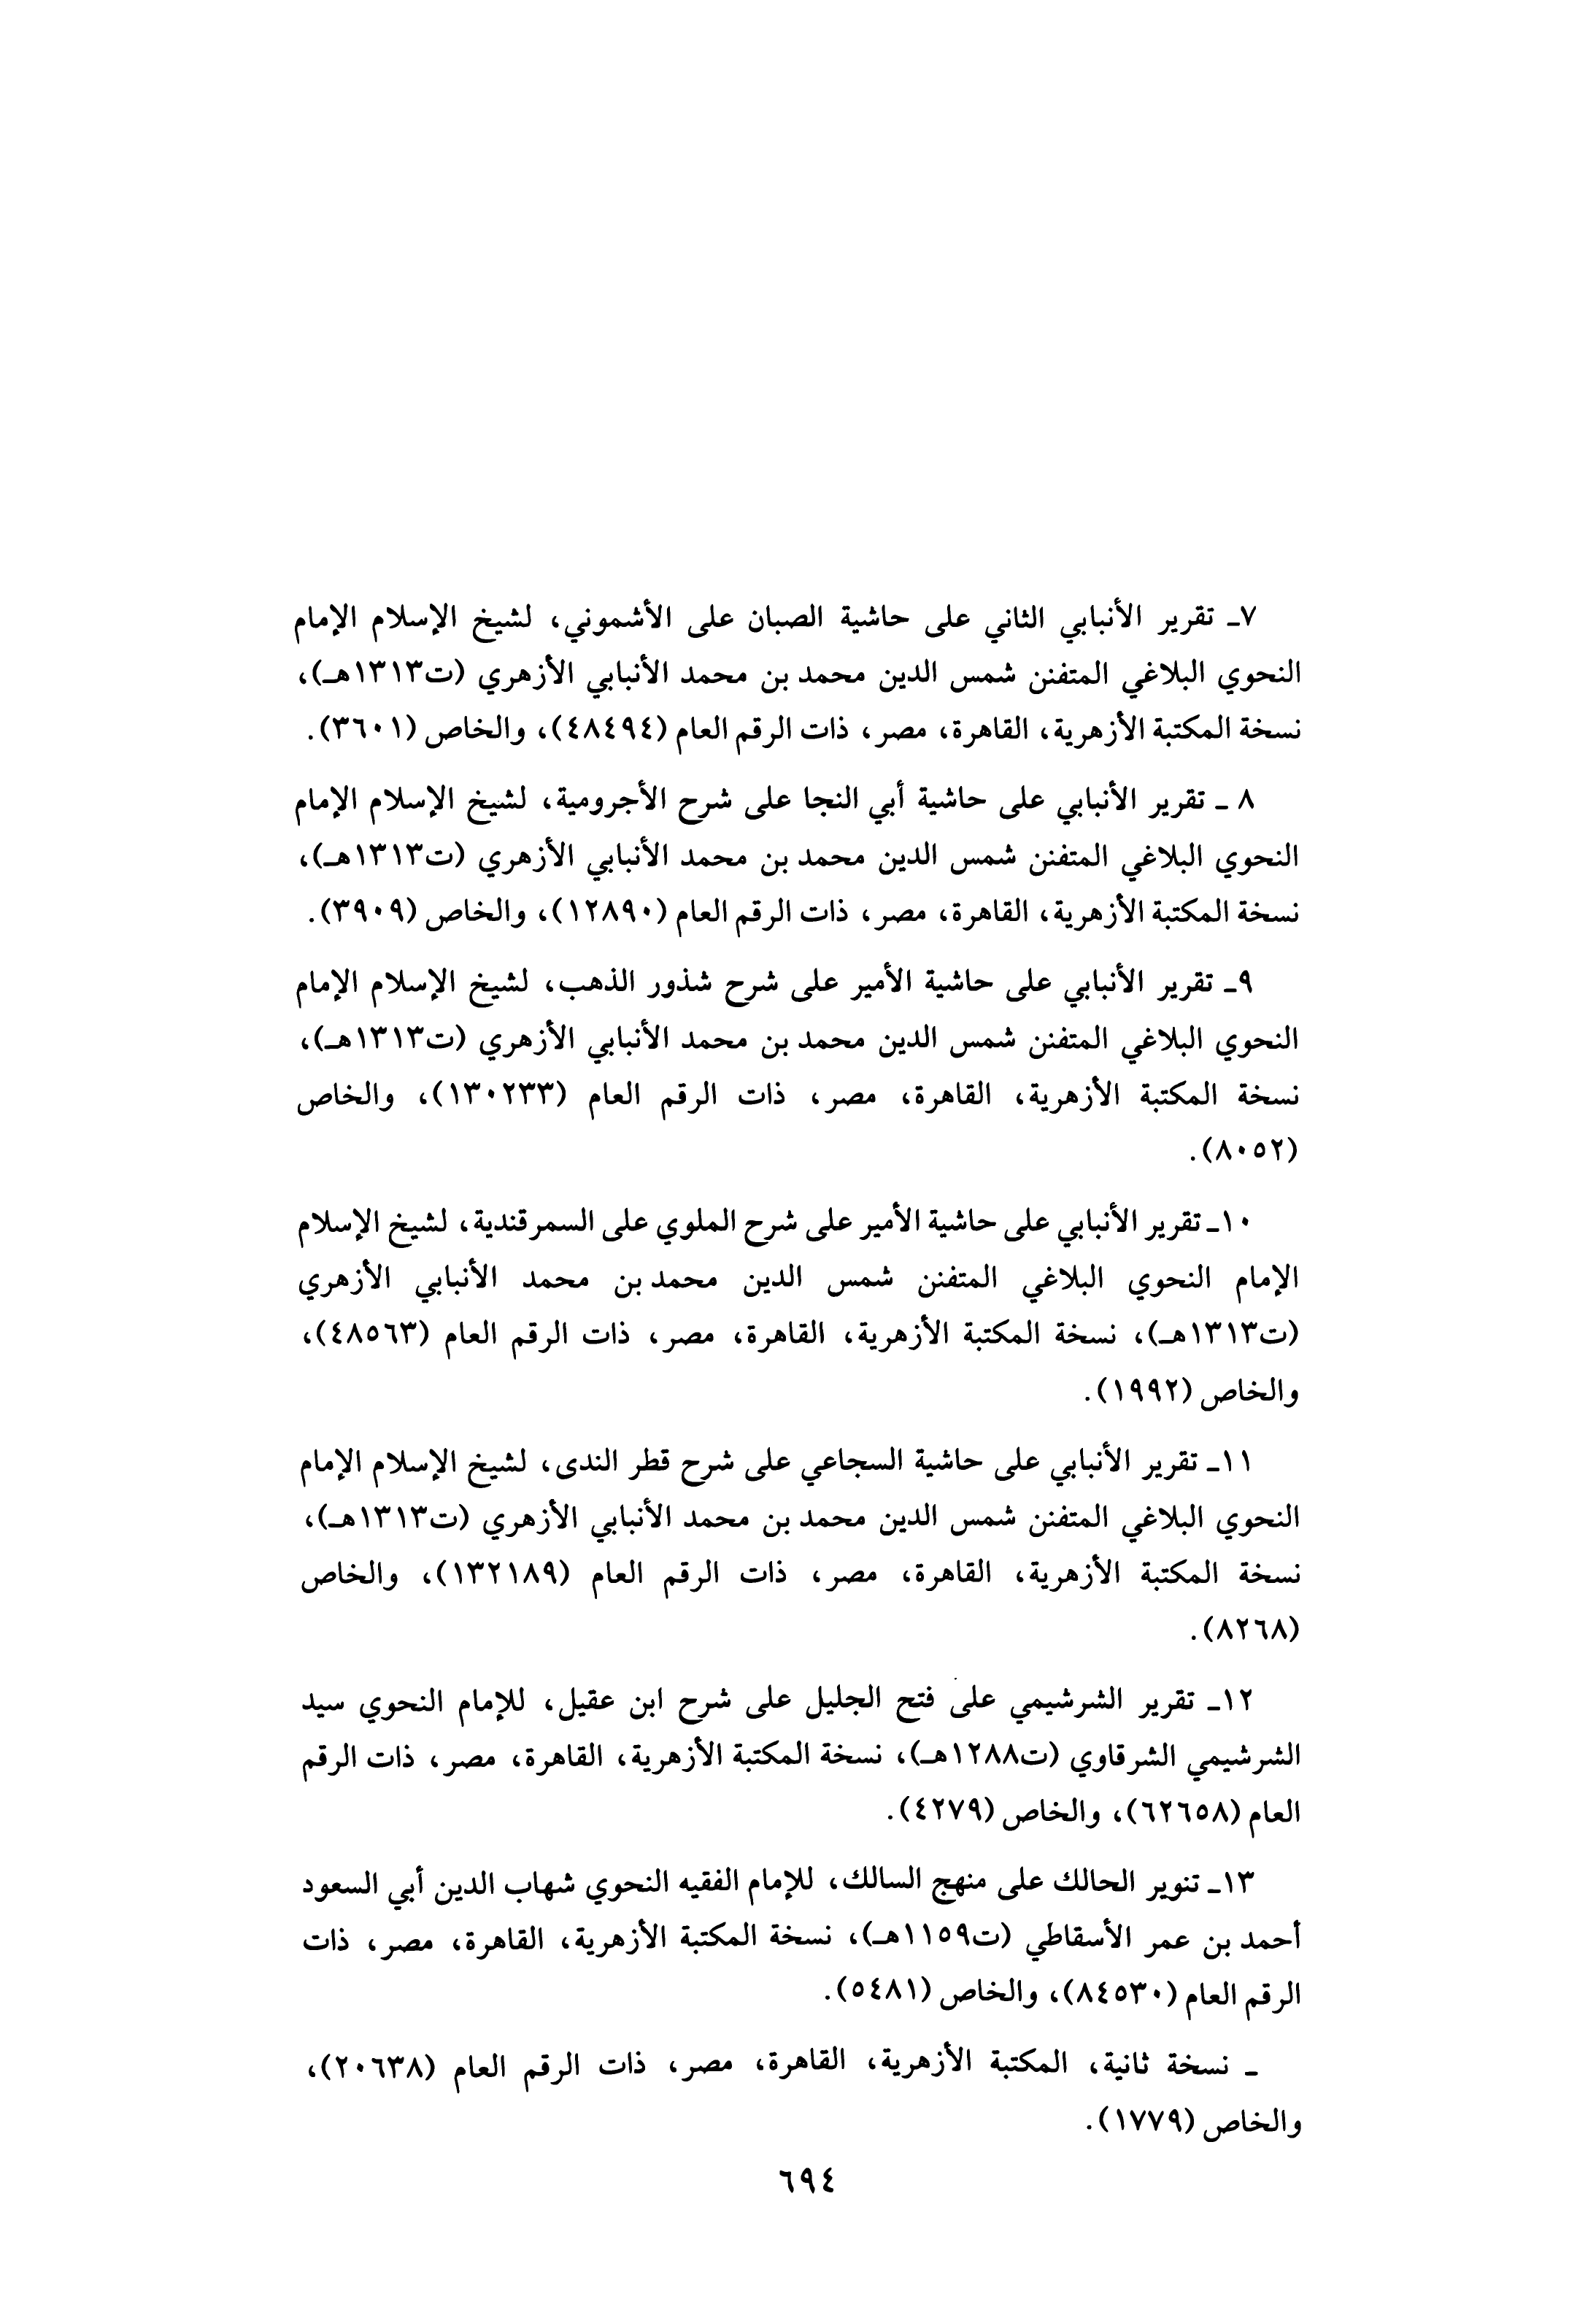 ٧ـ تقرير الأنبابي الثاني على حاشية الصبان على الأشموني، لشيخ الإسلام الإمام
النحوي البلاغي المتفنن شمس الدين محمد بن محمد الأنبابي الأزهري (ت١٣١٣هـ)،
نسخة المكتبة الأزهرية، القاهرة، مصر، ذات الرقم العام (٤٨٤٩٤)، والخاص (٣٦٠١).
٨ ـ تقرير الأنبابي على حاشية أبي النجا على شرح الأجرومية، لشيخ الإسلام الإمام
النحوي البلاغي المتفنن شمس الدين محمد بن محمد الأنبابي الأزهري (ت١٣١٣هـ)،
نسخة المكتبة الأزهرية، القاهرة، مصر، ذات الرقم العام (١٢٨٩٠)، والخاص (٣٩٠٩).
٩ـ تقرير الأنبابي على حاشية الأمير على شرح شذور الذهب، لشيخ الإسلام الإمام
النحوي البلاغي المتفنن شمس الدين محمد بن محمد الأنبابي الأزهري (ت١٣١٣هـ)،
نسخة المكتبة الأزهرية، القاهرة، مصر، ذات الرقم العام (١٣٠٢٣٣)، والخاص
(٨٠٥٢).
١٠ـ تقرير الأنبابي على حاشية الأمير على شرح الملوي على السمرقندية، لشيخ الإسلام
الإمام النحوي البلاغي المتفنن شمس الدين محمد بن محمد الأنبابي الأزهري
(ت١٣١٣هـ)، نسخة المكتبة الأزهرية، القاهرة، مصر، ذات الرقم العام (٤٨٥٦٣)،
والخاص (١٩٩٢).
١١ـ تقرير الأنبابي على حاشية السجاعي على شرح قطر الندى، لشيخ الإسلام الإمام
النحوي البلاغي المتفنن شمس الدين محمد بن محمد الأنبابي الأزهري (ت١٣١٣هـ)،
نسخة المكتبة الأزهرية، القاهرة، مصر، ذات الرقم العام (١٣٢١٨٩)، والخاص
(٨٢٦٨).
١٢ـ تقرير الشرشيمي على فتح الجليل على شرح ابن عقيل، للإمام النحوي سيد
الشرشيمي الشرقاوي (ت١٢٨٨هـ)، نسخة المكتبة الأزهرية، القاهرة، مصر، ذات الرقم
العام (٦٢٦٥٨)، والخاص (٤٢٧٩).
١٣ـ تنوير الحالك على منهج السالك، للإمام الفقيه النحوي شهاب الدين أبي السعود
أحمد بن عمر الأسقاطي (ت١١٥٩هـ)، نسخة المكتبة الأزهرية، القاهرة، مصر، ذات
الرقم العام (٨٤٥٣٠)، والخاص (٥٤٨١).
ـ نسخة ثانية، المكتبة الأزهرية، القاهرة، مصر، ذات الرقم العام (٢٠٦٣٨)،
والخاص (١٧٧٩).
٦٩٤